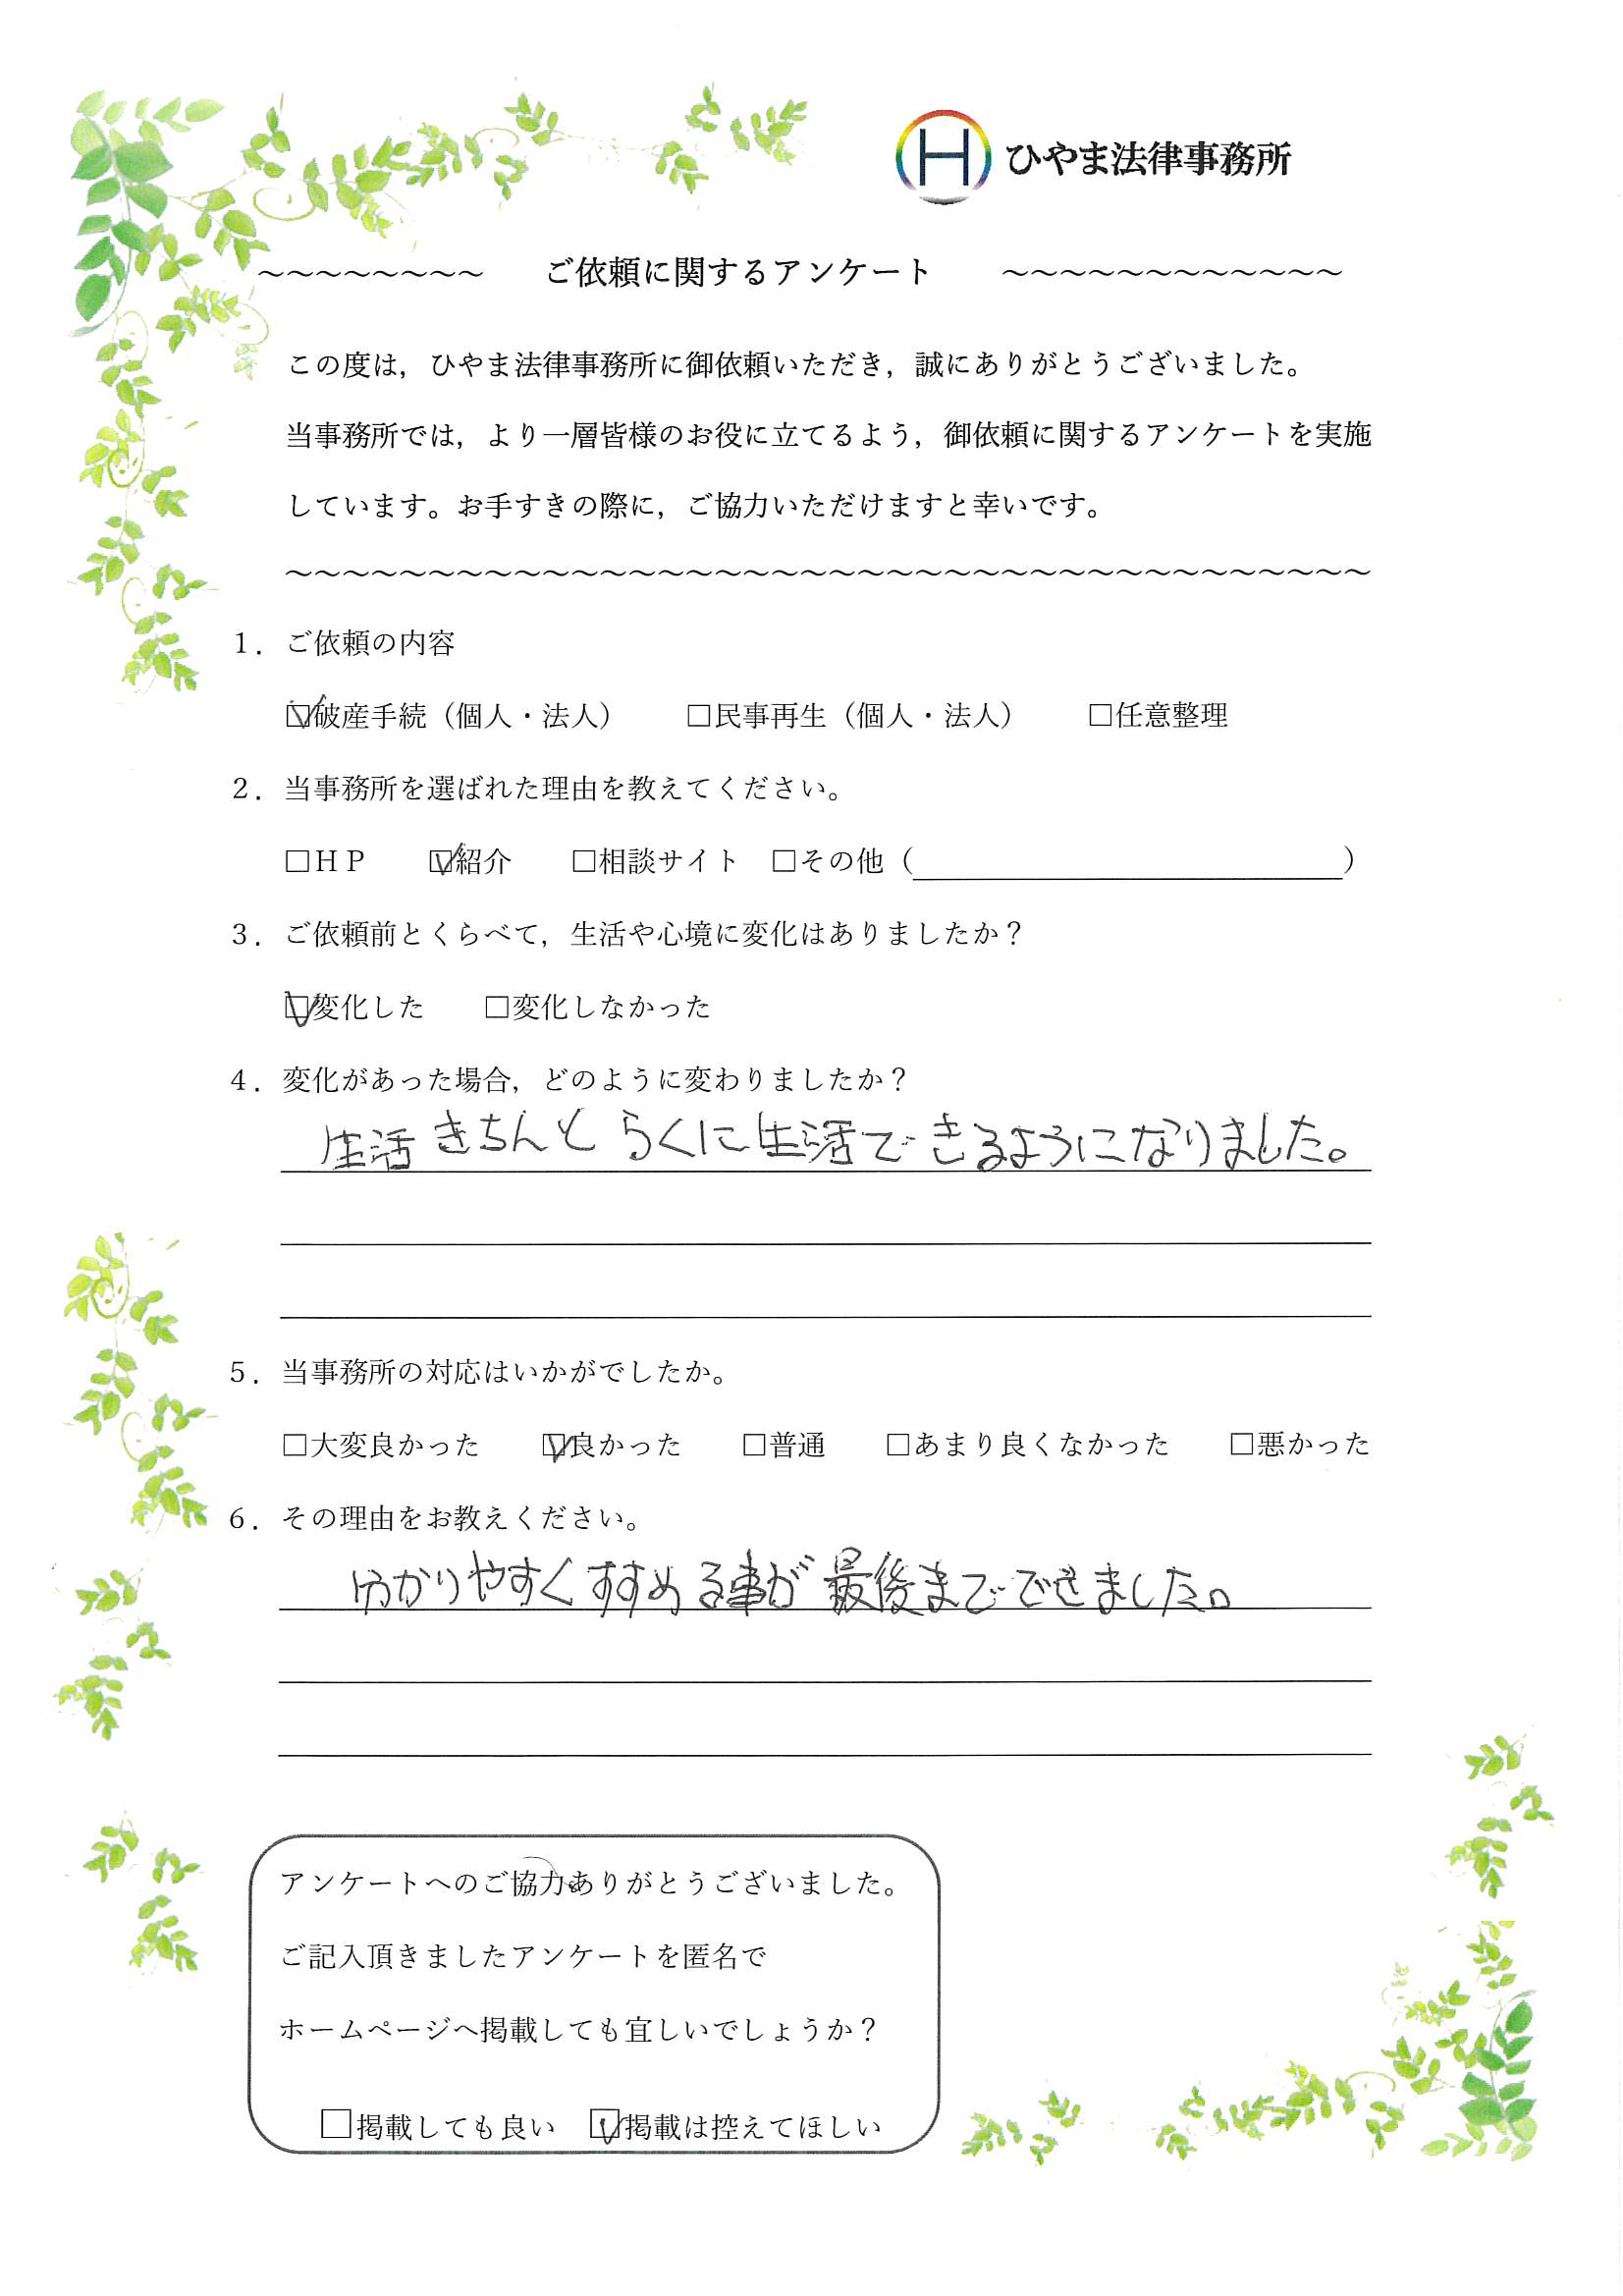 H ひやま法律事務所
～～～～～～～～ ご依頼に関するアンケート ～～～～～～～～～～～～
この度は，ひやま法律事務所に御依頼いただき，誠にありがとうございました。
当事務所では，より一層皆様のお役に立てるよう，御依頼に関するアンケートを実施
しています。お手すきの際に，ご協力いただけますと幸いです。
～～～～～～～～～～～～～～～～～～～～～～～～～～～～～～～～～～～～～～
１．ご依頼の内容
☑破産手続（個人・法人） □民事再生（個人・法人） □任意整理
２．当事務所を選ばれた理由を教えてください。
□ＨＰ ☑紹介 □相談サイト □その他（ ）
３．ご依頼前とくらべて，生活や心境に変化はありましたか？
☑変化した □変化しなかった
４．変化があった場合，どのように変わりましたか？
生活きちんとらくに生活できるようになりました。
５．当事務所の対応はいかがでしたか。
□大変良かった ☑良かった □普通 □あまり良くなかった □悪かった
６．その理由をお教えください。
分かりやすくすすめる事が最後までできました。
アンケートへのご協力ありがとうございました。
ご記入頂きましたアンケートを匿名で
ホームページへ掲載しても宜しいでしょうか？
□掲載しても良い ☑掲載は控えてほしい